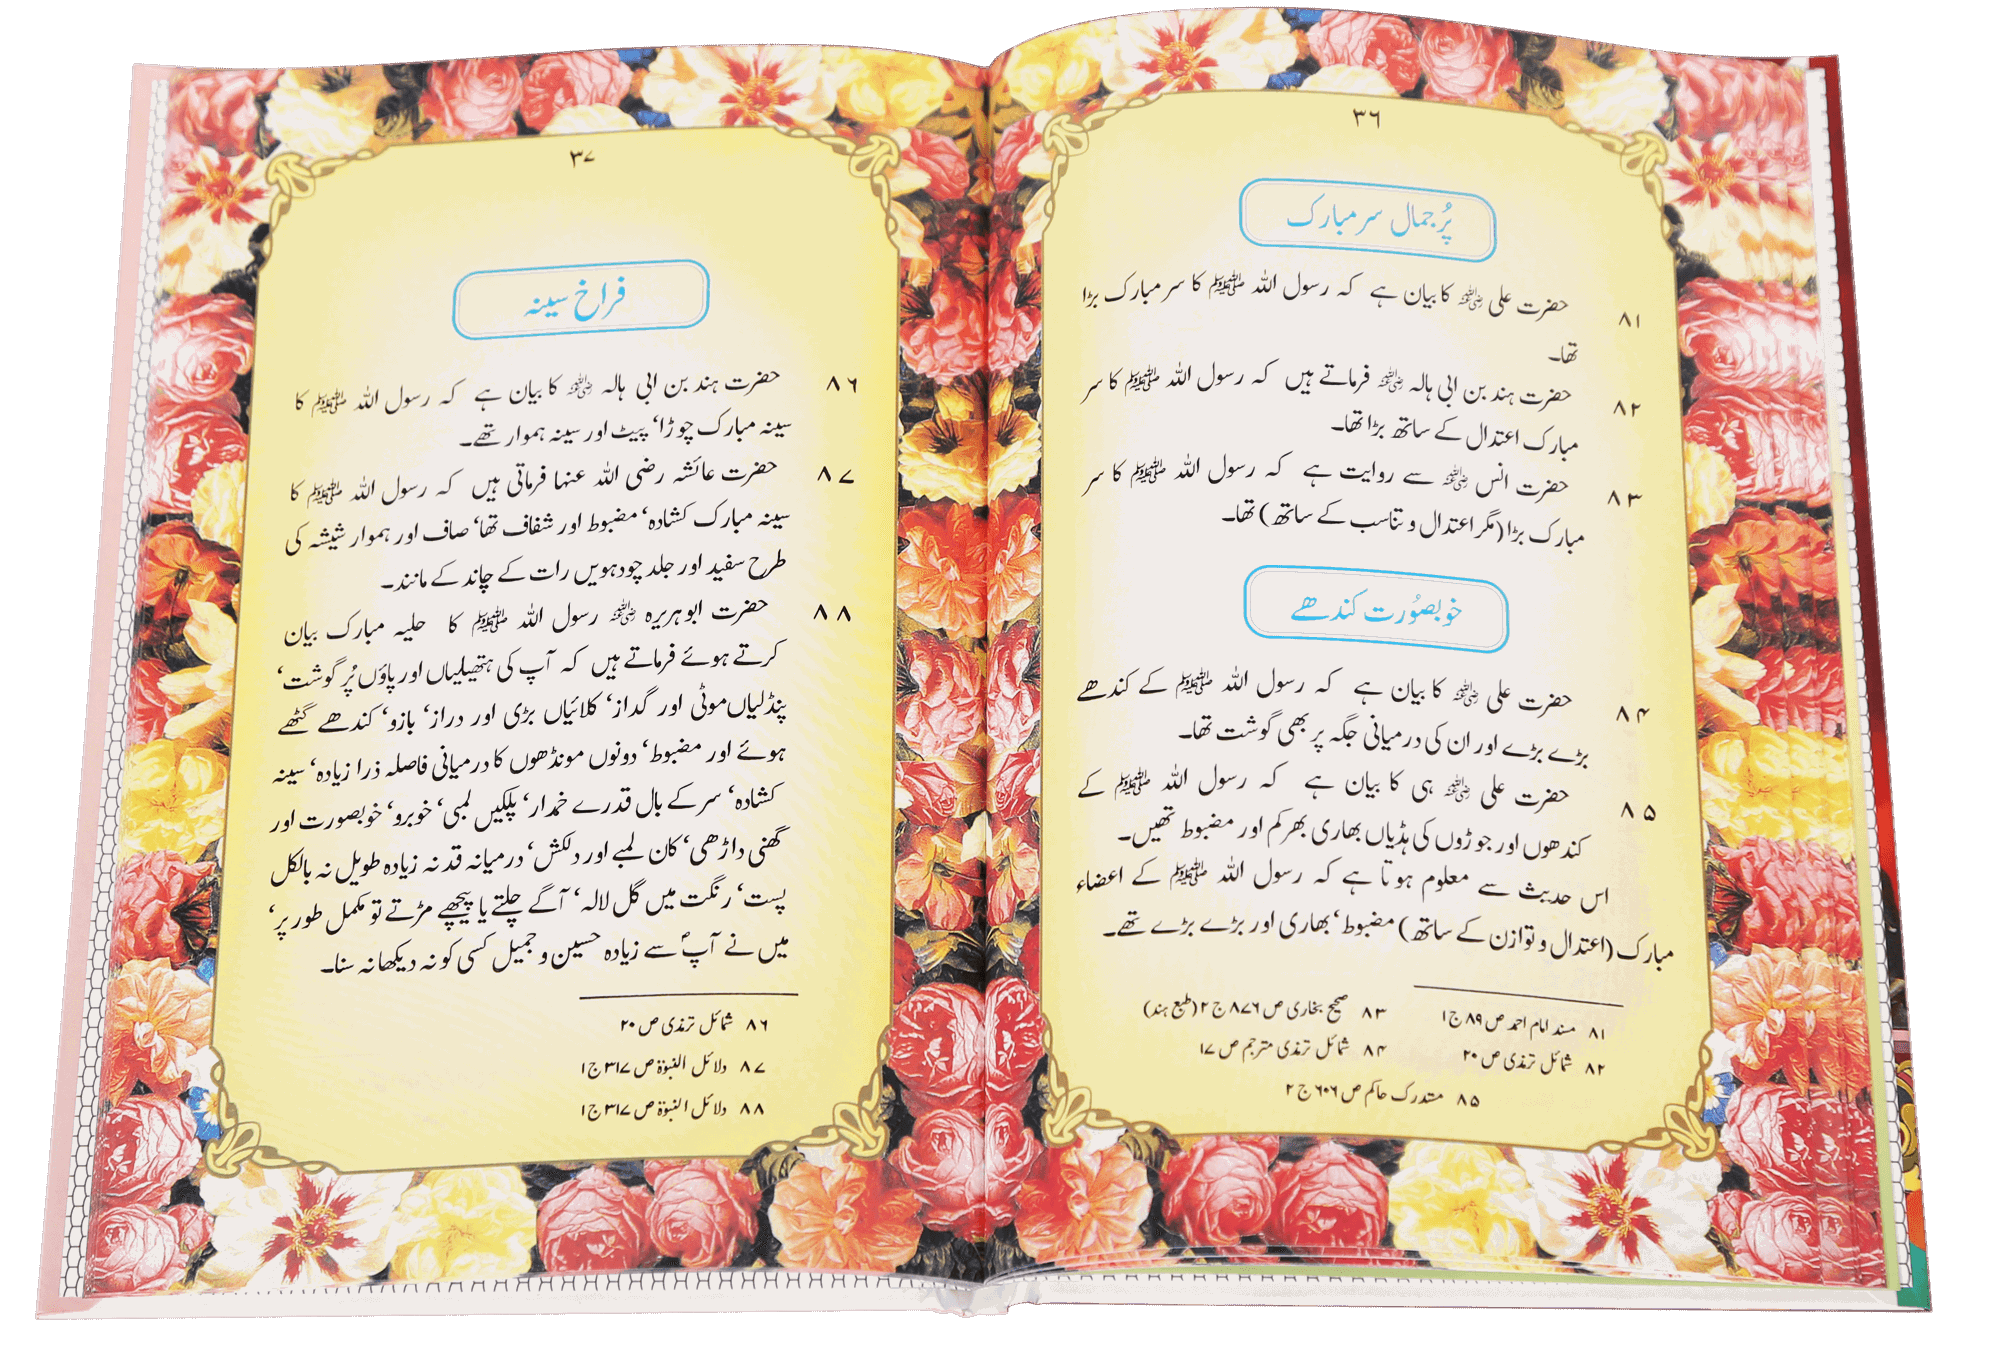 ۳۶
پُر جمال سر مبارک
۸۱ حضرت علی رضی اللہ عنہ کا بیان ہے کہ رسول اللہ ﷺ کا سر مبارک بڑا
تھا۔
۸۲ حضرت ہند بن ابی ہالہ رضی اللہ عنہ فرماتے ہیں کہ رسول اللہ ﷺ کا سر
مبارک اعتدال کے ساتھ بڑا تھا۔
۸۳ حضرت انس رضی اللہ عنہ سے روایت ہے کہ رسول اللہ ﷺ کا سر
مبارک بڑا (مگر اعتدال و تناسب کے ساتھ) تھا۔
خوبصُورت کندھے
۸۴ حضرت علی رضی اللہ عنہ کا بیان ہے کہ رسول اللہ ﷺ کے کندھے
بڑے بڑے اور ان کی درمیانی جگہ پر بھی گوشت تھا۔
۸۵ حضرت علی رضی اللہ عنہ ہی کا بیان ہے کہ رسول اللہ ﷺ کے
کندھوں اور جوڑوں کی ہڈیاں بھاری بھر کم اور مضبوط تھیں۔
اس حدیث سے معلوم ہوتا ہے کہ رسول اللہ ﷺ کے اعضاء
مبارک (اعتدال و توازن کے ساتھ) مضبوط، بھاری اور بڑے بڑے تھے۔
۸۱ مسند امام احمد ص ۸۹ ج ۱ ۸۳ صحیح بخاری ص ۸۷۶ ج ۲ (طبع ہند)
۸۲ شمائل ترمذی ص ۲۰ ۸۴ شمائل ترمذی مترجم ص ۱۷
۸۵ مستدرک حاکم ص ۶۰۶ ج ۲
۳۷
فراخ سینہ
۸۶ حضرت ہند بن ابی ہالہ رضی اللہ عنہ کا بیان ہے کہ رسول اللہ ﷺ کا
سینہ مبارک چوڑا، پیٹ اور سینہ ہموار تھے۔
۸۷ حضرت عائشہ رضی اللہ عنہا فرماتی ہیں کہ رسول اللہ ﷺ کا
سینہ مبارک کشادہ، مضبوط اور شفاف تھا، صاف اور ہموار شیشہ کی
طرح سفید اور جلد چودہویں رات کے چاند کے مانند۔
۸۸ حضرت ابوہریرہ رضی اللہ عنہ رسول اللہ ﷺ کا حلیہ مبارک بیان
کرتے ہوئے فرماتے ہیں کہ آپ کی ہتھیلیاں اور پاؤں پُر گوشت،
پنڈلیاں موٹی اور گداز، کلائیاں بڑی اور دراز، بازو، کندھے گٹھے
ہوئے اور مضبوط، دونوں مونڈھوں کا درمیانی فاصلہ ذرا زیادہ، سینہ
کشادہ، سر کے بال قدرے خمدار، پلکیں لمبی، خوبرو، خوبصورت اور
گھنی داڑھی، کان لمبے اور دلکش، درمیانہ قد نہ زیادہ طویل نہ بالکل
پست، رنگت میں گل لالہ، آگے چلتے یا پیچھے مڑتے تو مکمل طور پر،
میں نے آپؐ سے زیادہ حسین و جمیل کسی کو نہ دیکھا نہ سنا۔
۸۶ شمائل ترمذی ص ۲۰
۸۷ دلائل النبوۃ ص ۳۱۷ ج ۱
۸۸ دلائل النبوۃ ص ۳۱۷ ج ۱